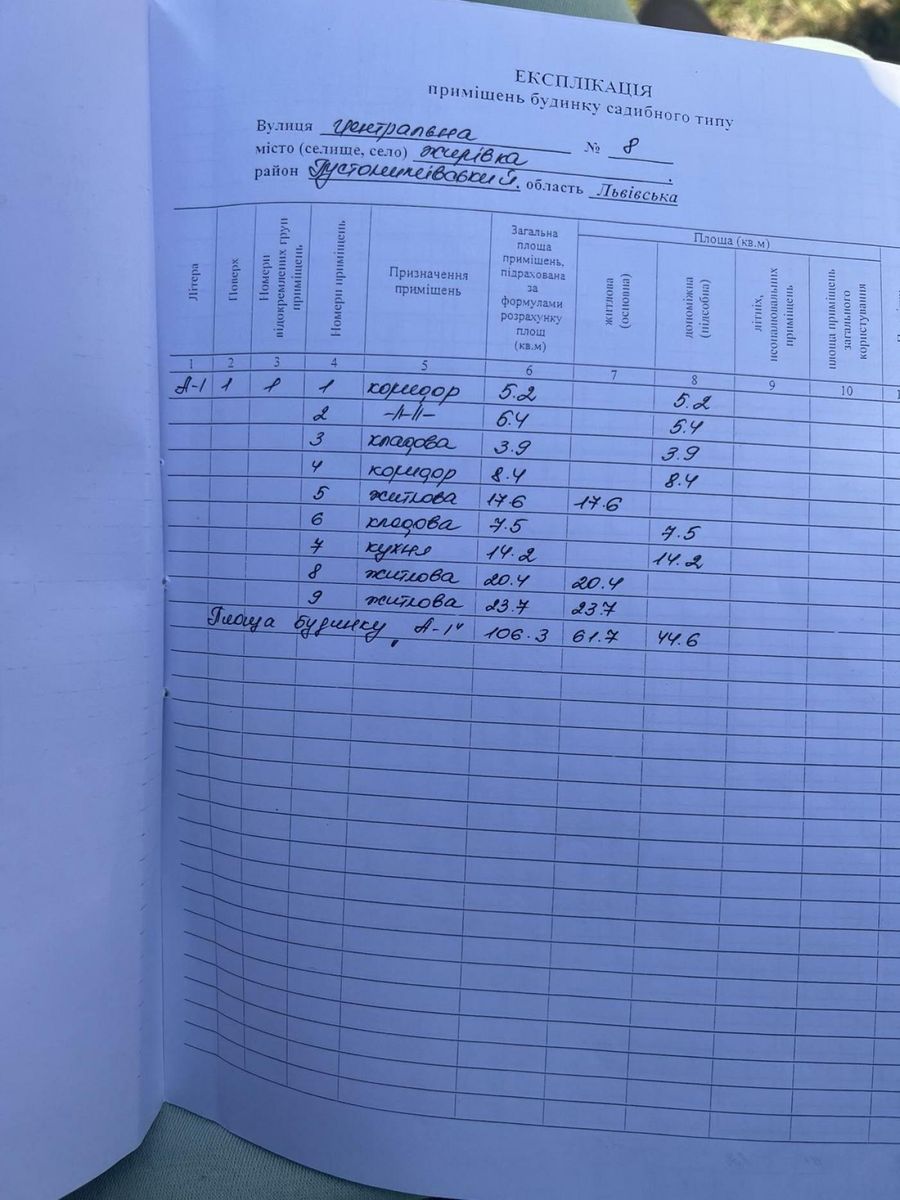 ЕКСПЛІКАЦІЯ
приміщень будинку садибного типу
Вулиця Центральна № 8
місто (селище, село) Жирівка
район Пустомитівський, область Львівська
Літера
Поверх
Номери відокремлених груп приміщень
Номери приміщень
Призначення приміщень
Загальна площа приміщень, підрахована за формулами розрахунку площ (кв.м)
Площа (кв.м)
житлова (основна)
допоміжна (підсобна)
літніх, неопалювальних приміщень
площа приміщень загального користування
1 2 3 4 5 6 7 8 9 10
А-1 1 1 1 коридор 5.2 5.2
2 -//-//- 5.4 5.4
3 кладова 3.9 3.9
4 коридор 8.4 8.4
5 житлова 17.6 17.6
6 кладова 7.5 7.5
7 кухня 14.2 14.2
8 житлова 20.4 20.4
9 житлова 23.7 23.7
Площа будинку „А-1" 106.3 61.7 44.6